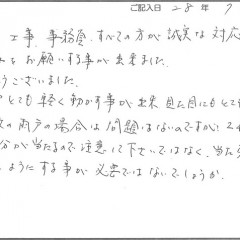 ご記入日 28 年 7
工事、事務員、すべての方が誠実な対応
お願いする事が出来ました。
うございました。
とても軽く動かす事が出来 見た目にもとて
の雨戸の場合は問題はないのですが、
分が当たるので注意して下さいではなく、当た
ようにする事が必要ではないでしょうか。